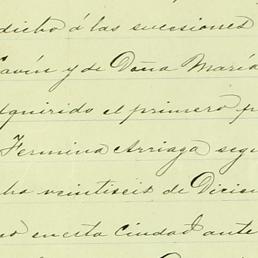 dicho á las sucesiones
Gavín y de Doña María
dquirido el primero p
Fermina Arriaga segu
ha veintiseis de Dicie
en esta Ciudad ante